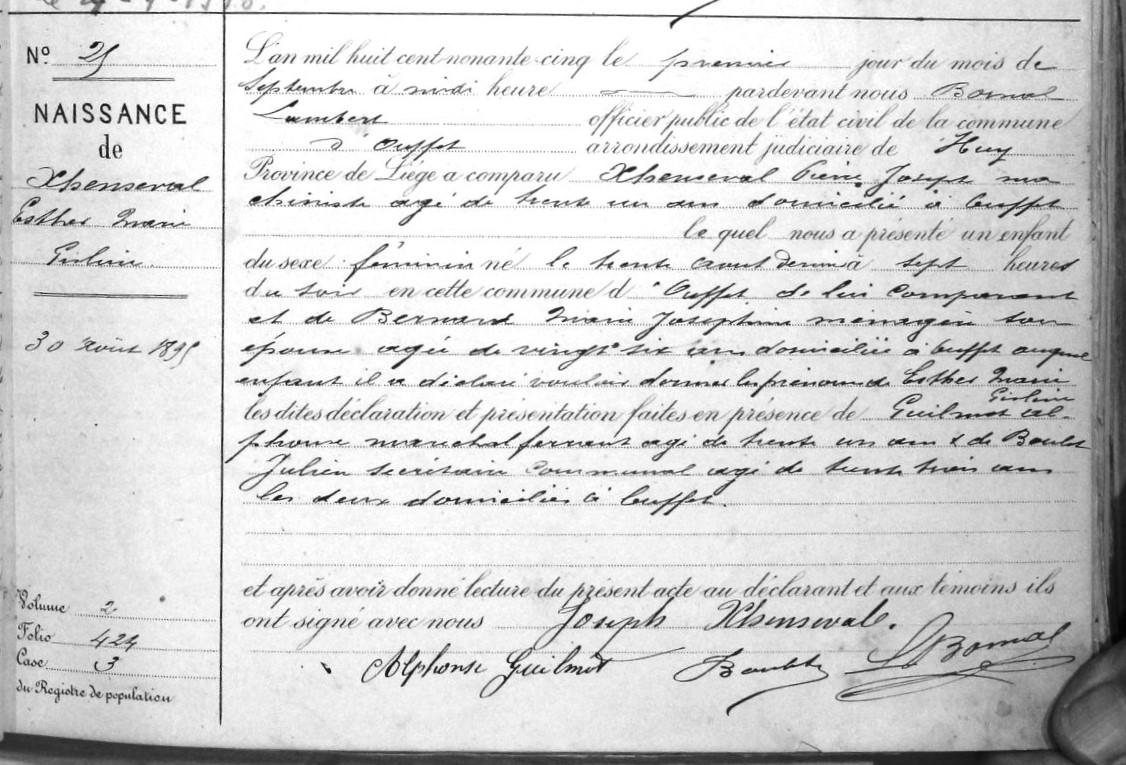 N° 25
NAISSANCE
de
Xhenseval
Esther Marie
Gisline
30 août 1895
Volume 2
Folio 424
Case 3
du Registre de population
L'an mil huit cent nonante-cinq le premier jour du mois de
Septembre à midi heure pardevant nous Bornal
Lambert officier public de l'état civil de la commune
d'Ouffet arrondissement judiciaire de Huy
Province de Liége a comparu Xhenseval Pierre Joseph ma
chiniste agé de trente un ans domicilié à Ouffet
lequel nous a présenté un enfant
du sexe féminin né le trente aout dernier à sept heures
du soir en cette commune d'Ouffet de lui comparant
et de Bernard Marie Josephine ménagère son
epouse agée de vingt six ans domiciliée à Ouffet auquel
enfant il a déclaré vouloir donner les prénoms de Esther Marie
Gisline
les dites déclaration et présentation faites en présence de Guilmot Al-
phonse maréchal ferrant agé de trente un ans & de
Julien secrétaire communal agé de trente trois ans
les deux domiciliés à Ouffet.
et après avoir donné lecture du présent acte au déclarant et aux témoins ils
ont signé avec nous Joseph Xhenseval.
Alphonse Guilmot LBornal